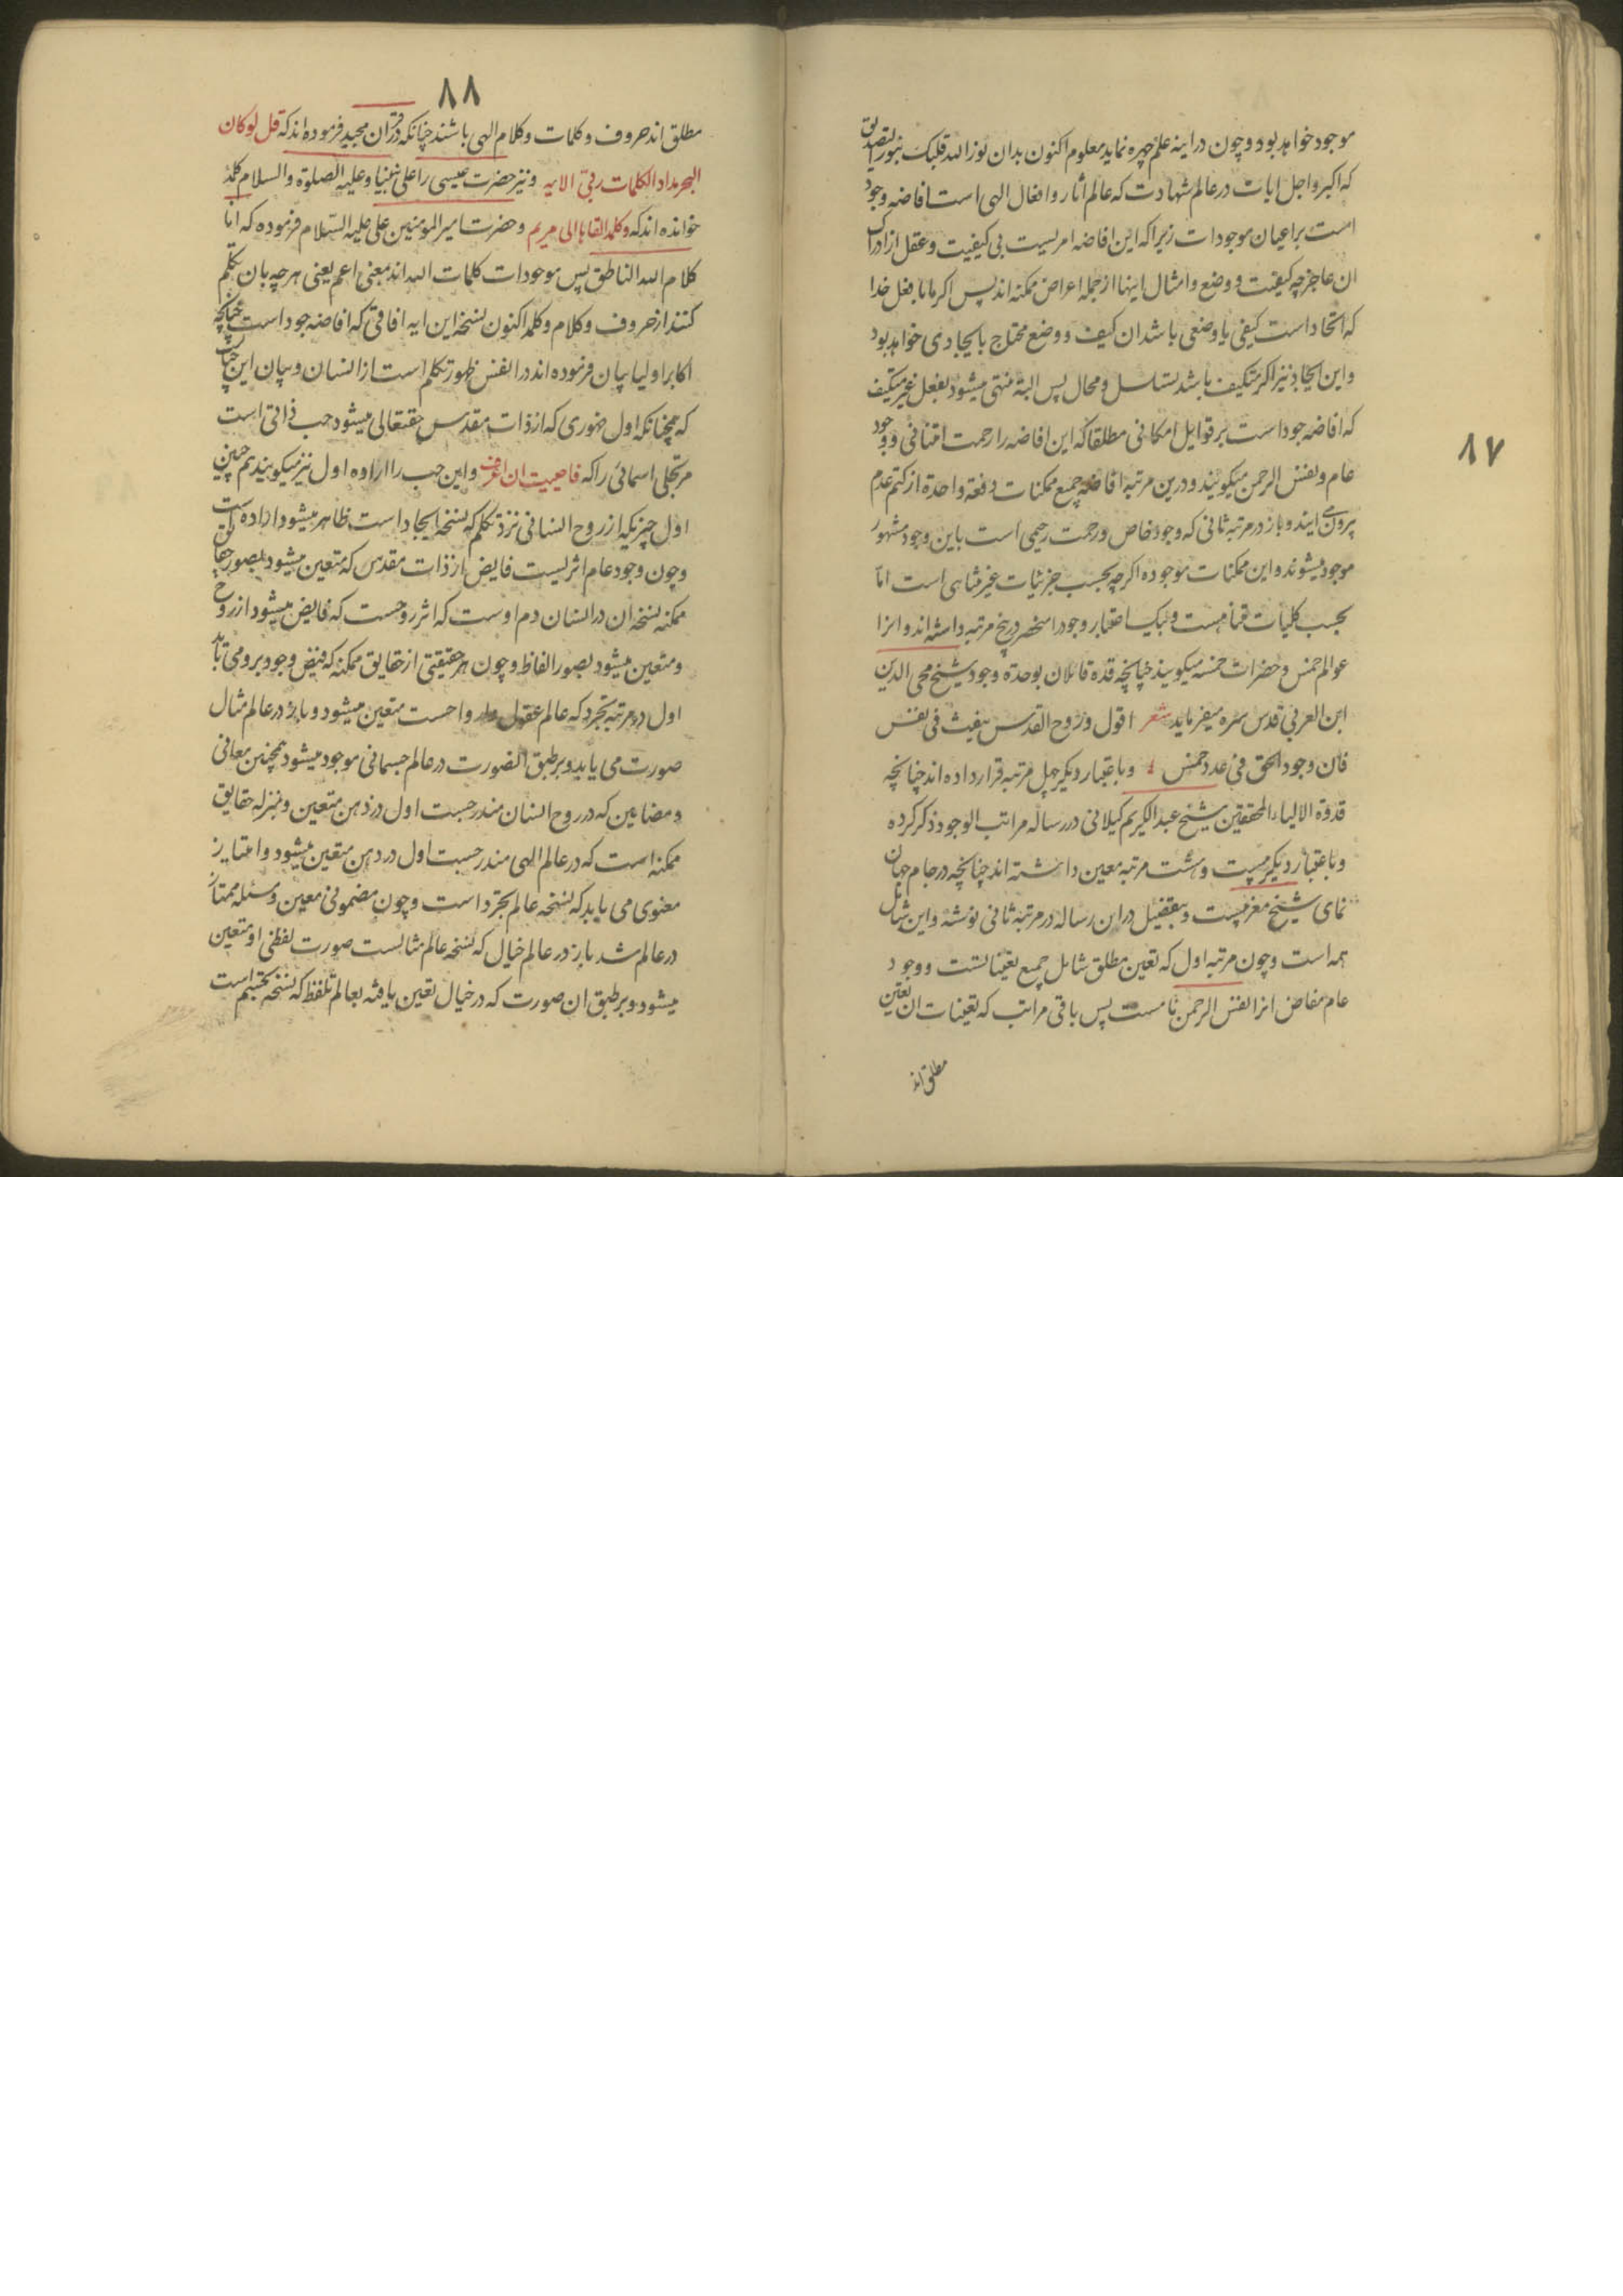 ٨٧
موجود خواهد بود و چون در اینه علم چهره نماید معلوم اکنون بدان نور الله قلبک بنور التصدیق
که اکبر و اجل ایات در عالم شهادت که عالم آثار و افعال الهی است افاضه وجود
است بر اعیان موجودات زیرا که این افاضه امریست بی کیفیت و عقل از ادراک
ان عاجز چه کیفیت و وضع و امثال اینها از جمله اعراض ممکنه اند پس اگر مابا بفعل خدا
که اتحاد است کیفی یا وضعی باشد ان کیف و وضع محتاج بایجادی خواهد بود
و این ایجاد نیز اگر متکیف باشد بتسلسل و محال پس البته منتهی میشود بفعل غیر متکیف
که افاضه جود است بر قوابل امکانی مطلقا که این افاضه را رحمت امتنانی و وجود
عام و نفس الرحمن میکویند و درین مرتبه افاضه جمیع ممکنات دفعة واحدة از کتم عدم
بیرون می ایند و باز در مرتبه ثانی که وجود خاص و رحمت رحیمی است باین وجود مشهور
موجود میشوند و این ممکنات موجوده اگرچه بحسب جزئیات غیر متناهی است اما
بحسب کلیات متناهیست و بیک اعتبار وجود را منحصر در پنج مرتبه داشته اند و انرا
عوالم خمس و حضرات خمسه میکویند چنانچه قدوه قائلان بوحدة وجود شیخ محی الدین
ابن العربی قدس سره میفرماید شعر اقول و روح القدس ینفث فی نفس
فان وجود الحق فی عدد خمس و باعتبار دیکر چهل مرتبه قرار داده اند چنانچه
قدوة الاولیاء المحققین شیخ عبد الکریم کیلانی در رساله مراتب الوجود ذکر کرده
و باعتبار دیکر بیست و هشت مرتبه معین داشته اند چنانچه در جام جهان
نمای شیخ مغربیست و بتفصیل در این رساله در مرتبه ثانی نوشته و این شامل
همه است و چون مرتبه اول که تعین مطلق شامل جمیع تعیناتست و وجود
عام مفاض انرا نفس الرحمن نامست پس باقی مراتب که تعینات ان تعین
مطلق اند
٨٨
مطلق اند حروف و کلمات و کلام الهی باشند چنانکه در قران مجید فرموده اند که قل لو کان
البحر مدادا لکلمات ربی الایه و نیز حضرت عیسی را علی نبینا و علیه الصلوة والسلام کلمه
خوانده اند که و کلمته القاها الی مریم و حضرت امیر المومنین علی علیه السلام فرموده که انا
کلام الله الناطق پس موجودات کلمات الله اند بمعنی اعم یعنی هرچه بان تکلم
کنند از حروف و کلام و کلمه اکنون نسخه این ایه افاقی که افاضه جود است چنانچه
اکابر اولیا بیان فرموده اند در انفس ظهور تکلم است از انسان و بیان این
که همچنانکه اول ظهوری که از ذات مقدس حقتعالی میشود حب ذاتی است
مر تجلی اسمائی را که فاحببت ان اعرف و این حب را اراده اول نیز میکویند همچنین
اول چیزیکه از روح انسانی نزد تکلم که نسخه ایجاد است ظاهر میشود اراده است
و چون وجود عام اثریست فایض از ذات مقدس که متعین میشود بصور حقایق
ممکنه نسخه ان در انسان دم اوست که اثر روحست که فایض میشود از روح
و متعین میشود بصور الفاظ و چون هر حقیقتی از حقایق ممکنه که فیض وجود برو می تابد
اول در مرتبه تجرد که عالم عقول و ارواحست متعین میشود و باز در عالم مثال
صورت می یابد و بر طبق الصورت در عالم جسمانی موجود میشود همچنین معانی
و مضامین که در روح انسان مندرجست اول در ذهن متعین و بمنزله حقایق
ممکنه است که در عالم الهی مندرجست اول در ذهن متعین میشود و امتیاز
معنوی می یابد که نسخه عالم تجرد است و چون مضمونی معین و مسئله ممتاز
در عالم شد باز در عالم خیال که نسخه عالم مثالست صورت لفظی او متعین
میشود و بر طبق ان صورت که در خیال تعین یافته بعالم تلفظ که نسخه تجسم است